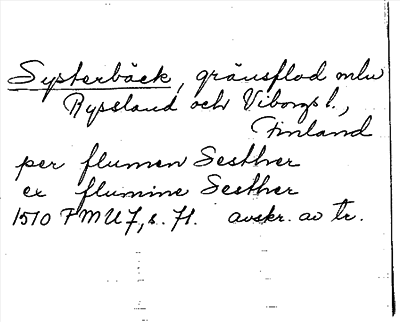 Systerbäck, gränsflod mlw
Ryssland och Viborgs l.,
Finland
per flumen Sesther
ex flumine Sesther
1510 FMU 7, s. 71. avskr. av tr.